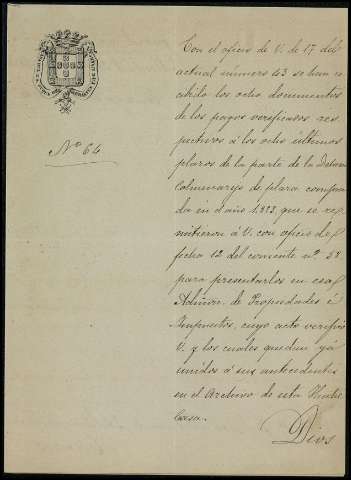 Nº 64
Con el oficio de V. de 17 del
actual numero 43 se han re
cibido los ocho documentos
de los pagos verificados res
pectivos á los ocho últimos
plazos de la parte de la
de plaza compra
da en el año 1,873, que se re
mitieron á V. con oficio de
fecha 12 del corriente nº 58
para presentarlos en esa
Admon. de Propiedades é
Impuestos, cuyo acto verificó
V. y los cuales quedan yá
unidos á sus antecedentes
en el Archivo de esta
Casa.
Dios